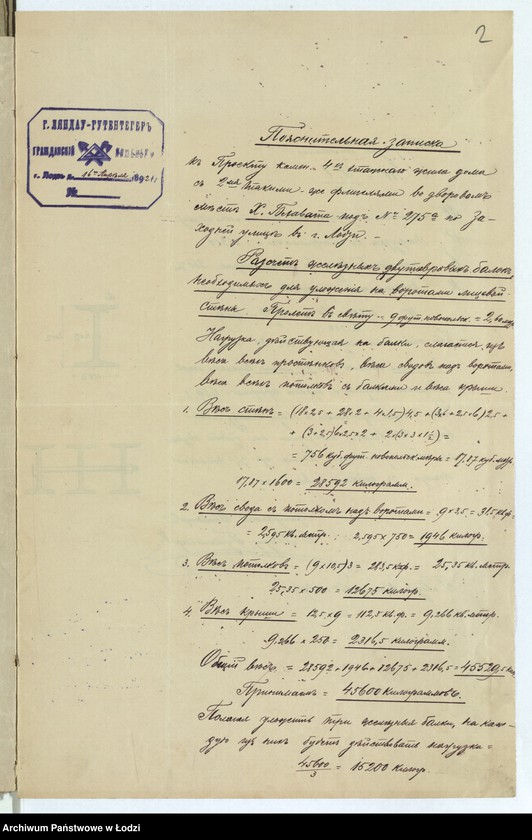 2
Г. ЛЯНДАУ-ГУТЕНТЕГЕРЪ
ГРАЖДАНСКІЙ
г. Лодзь
№
Пояснительная записка
къ Проекту камен. 4хъ этажнаго жила дома
съ 2мя такими-же флигелями во дворовомъ
мѣстѣ Х. Блавата подъ № 275а по За-
ходней улицѣ въ г. Лодзи. —
Разсчетъ желѣзныхъ двутавровыхъ балокъ,
необходимыхъ для уложенія надъ воротами лицевой
стѣны. Пролетъ въ свѣту — 9 фут. новопольск. =
Нагрузка, дѣйствующая на балки, слагается изъ
вѣса всѣхъ простѣнковъ, вѣса сводовъ надъ воротами,
вѣса всѣхъ потолковъ съ балками и вѣса крыши.
1. Вѣсъ стѣнъ =
= 756 куб. фут. новопольск. мѣры = 17,87 куб. мтр.
17,87 x 1600 = 28592 килограмм.
2. Вѣсъ свода съ потолкомъ надъ воротами = 9 x 3,5 = 31,5 кв.ф.
= 2,595 кв. метр. ; 2,595 x 750 = 1946 килогр.
3. Вѣсъ потолковъ = (9 x 10,5) 3 = 283,5 кв.ф. = 25,35 кв. метр.
25,35 x 500 = 12675 килогр.
4. Вѣсъ крыши = 12,5 x 9 = 112,5 кв. ф. = 9,266 кв. метр.
9,266 x 250 = 2316,5 килограмм.
Общій вѣсъ = 28592 + 1946 + 12675 + 2316,5 = 45529,5
Принимаемъ = 45600 килограммовъ.
Полагая уложить три желѣзныя балки, на каж-
дую изъ нихъ будетъ дѣйствовать нагрузка =
45600/3 = 15200 килогр.
Archiwum Państwowe w Łodzi